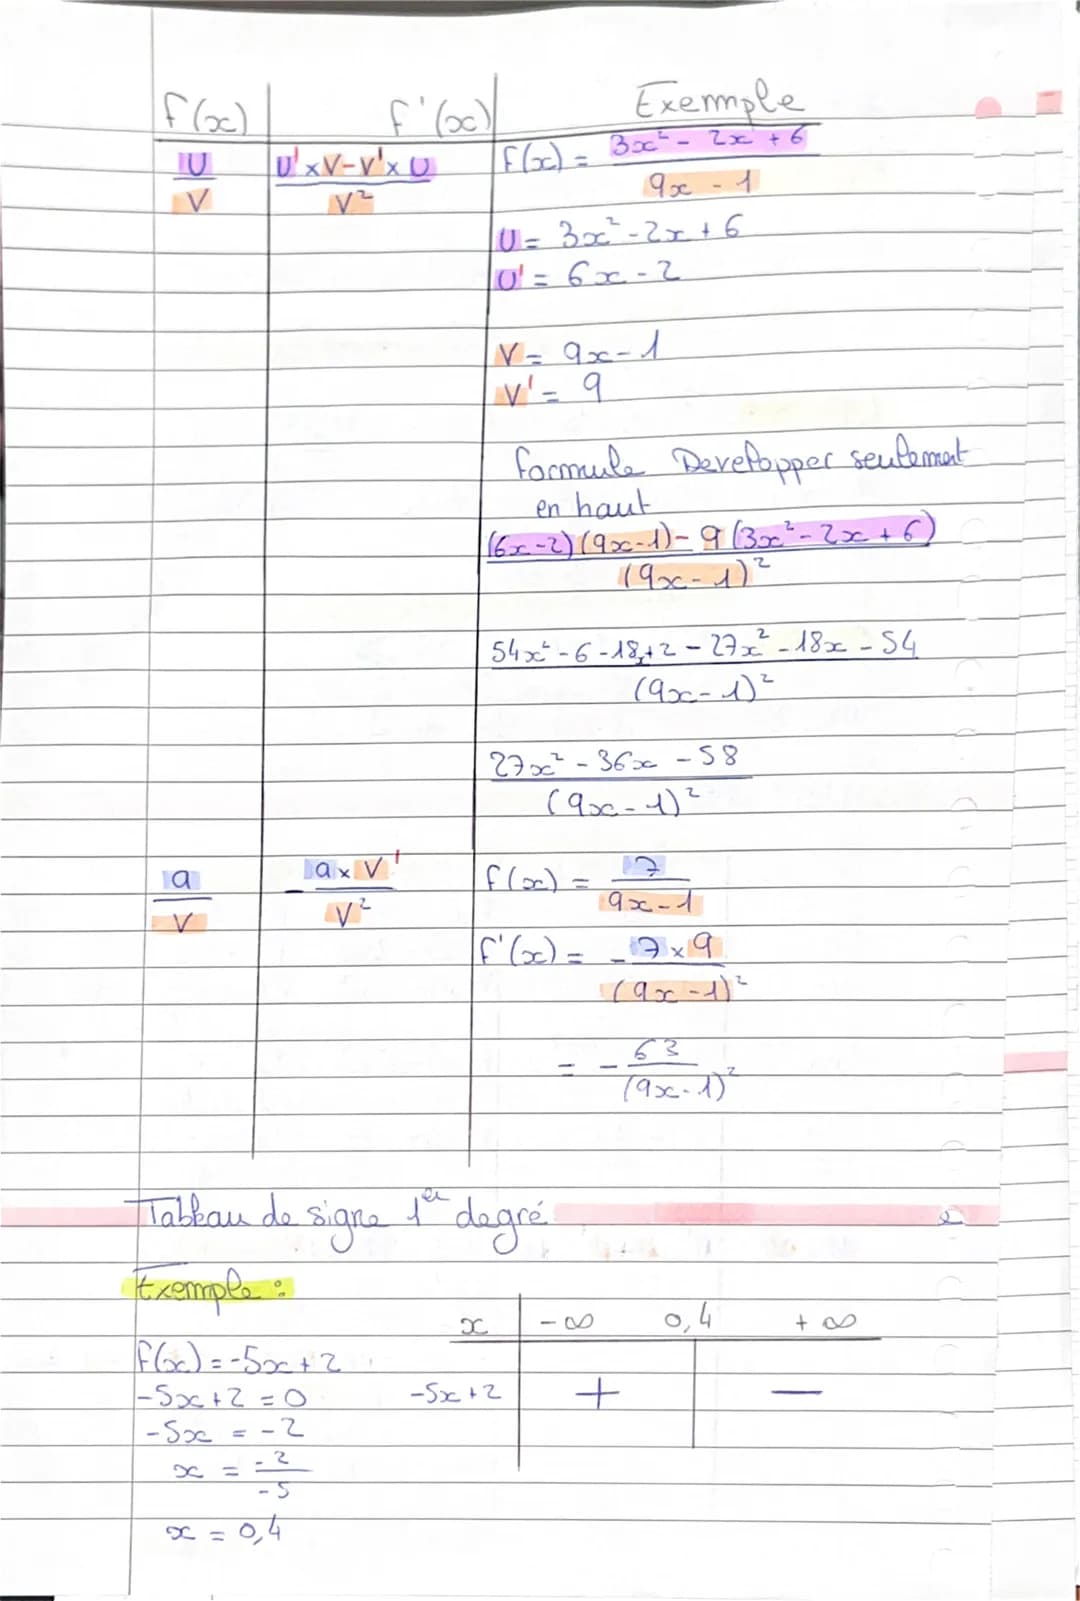 f(x) f'(x) Exemple
U/V U'×V-V'×U/V² f(x) = 3x² - 2x + 6/9x - 1
U = 3x² - 2x + 6
U' = 6x - 2
V = 9x - 1
V' = 9
formule Developper seulement
en haut
(6x-2)(9x-1) - 9(3x² - 2x + 6)/(9x-1)²
54x² - 6 - 18x + 2 - 27x² - 18x - 54/(9x-1)²
27x² - 36x - 58/(9x-1)²
a/V - a×V'/V² f(x) = 7/9x-1
f'(x) = - 7×9/(9x-1)²
= - 63/(9x-1)²
Tableau de signe 1er degré
Exemple :
x -∞ 0,4 +∞
f(x) = -5x+2
-5x+2 = 0
-5x+2 + —
-5x = -2
x = -2/-5
x = 0,4